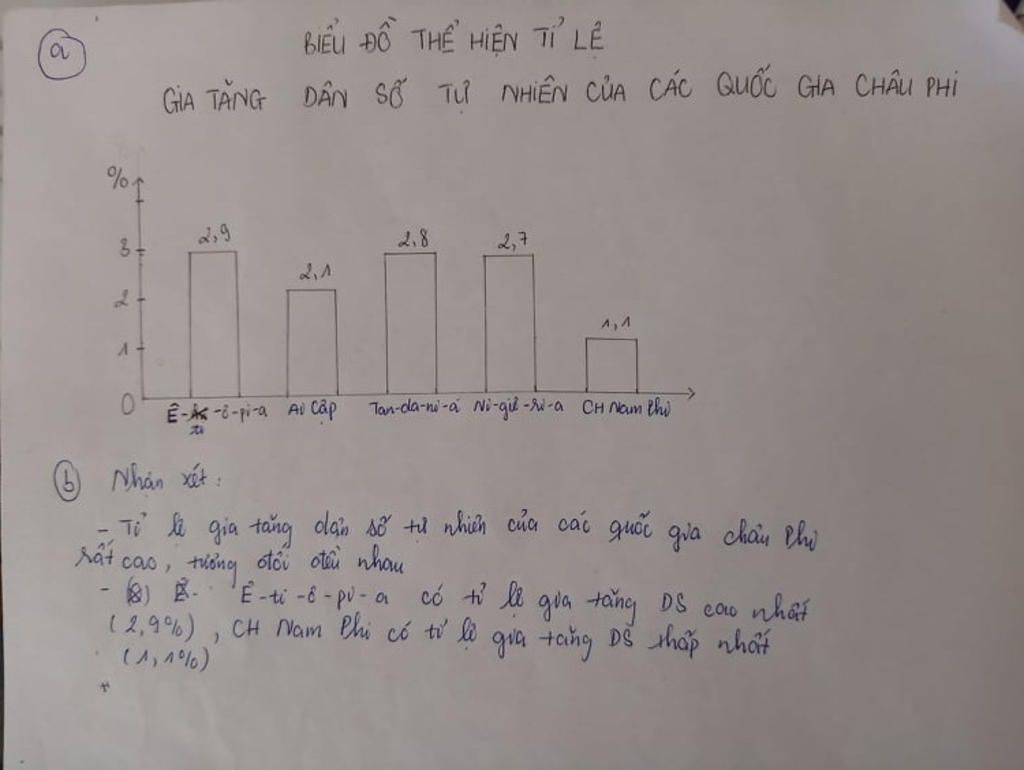 a
BIỂU ĐỒ THỂ HIỆN TỈ LỆ
GIA TĂNG DÂN SỐ TỰ NHIÊN CỦA CÁC QUỐC GIA CHÂU PHI
%
3
2
1
0
2,9
2,1
2,8
2,7
1,1
Ê- -ô-pi-a
ti
Ai Cập
Tan-da-ni-a
Ni-giê-ri-a
CH Nam Phi
b Nhận xét:
- Tỉ lệ gia tăng dân số tự nhiên của các quốc gia châu Phi
rất cao, tương đối đều nhau
- Ê-ti-ô-pi-a có tỉ lệ gia tăng DS cao nhất
(2,9%), CH Nam Phi có tỉ lệ gia tăng DS thấp nhất
(1,1%)
+